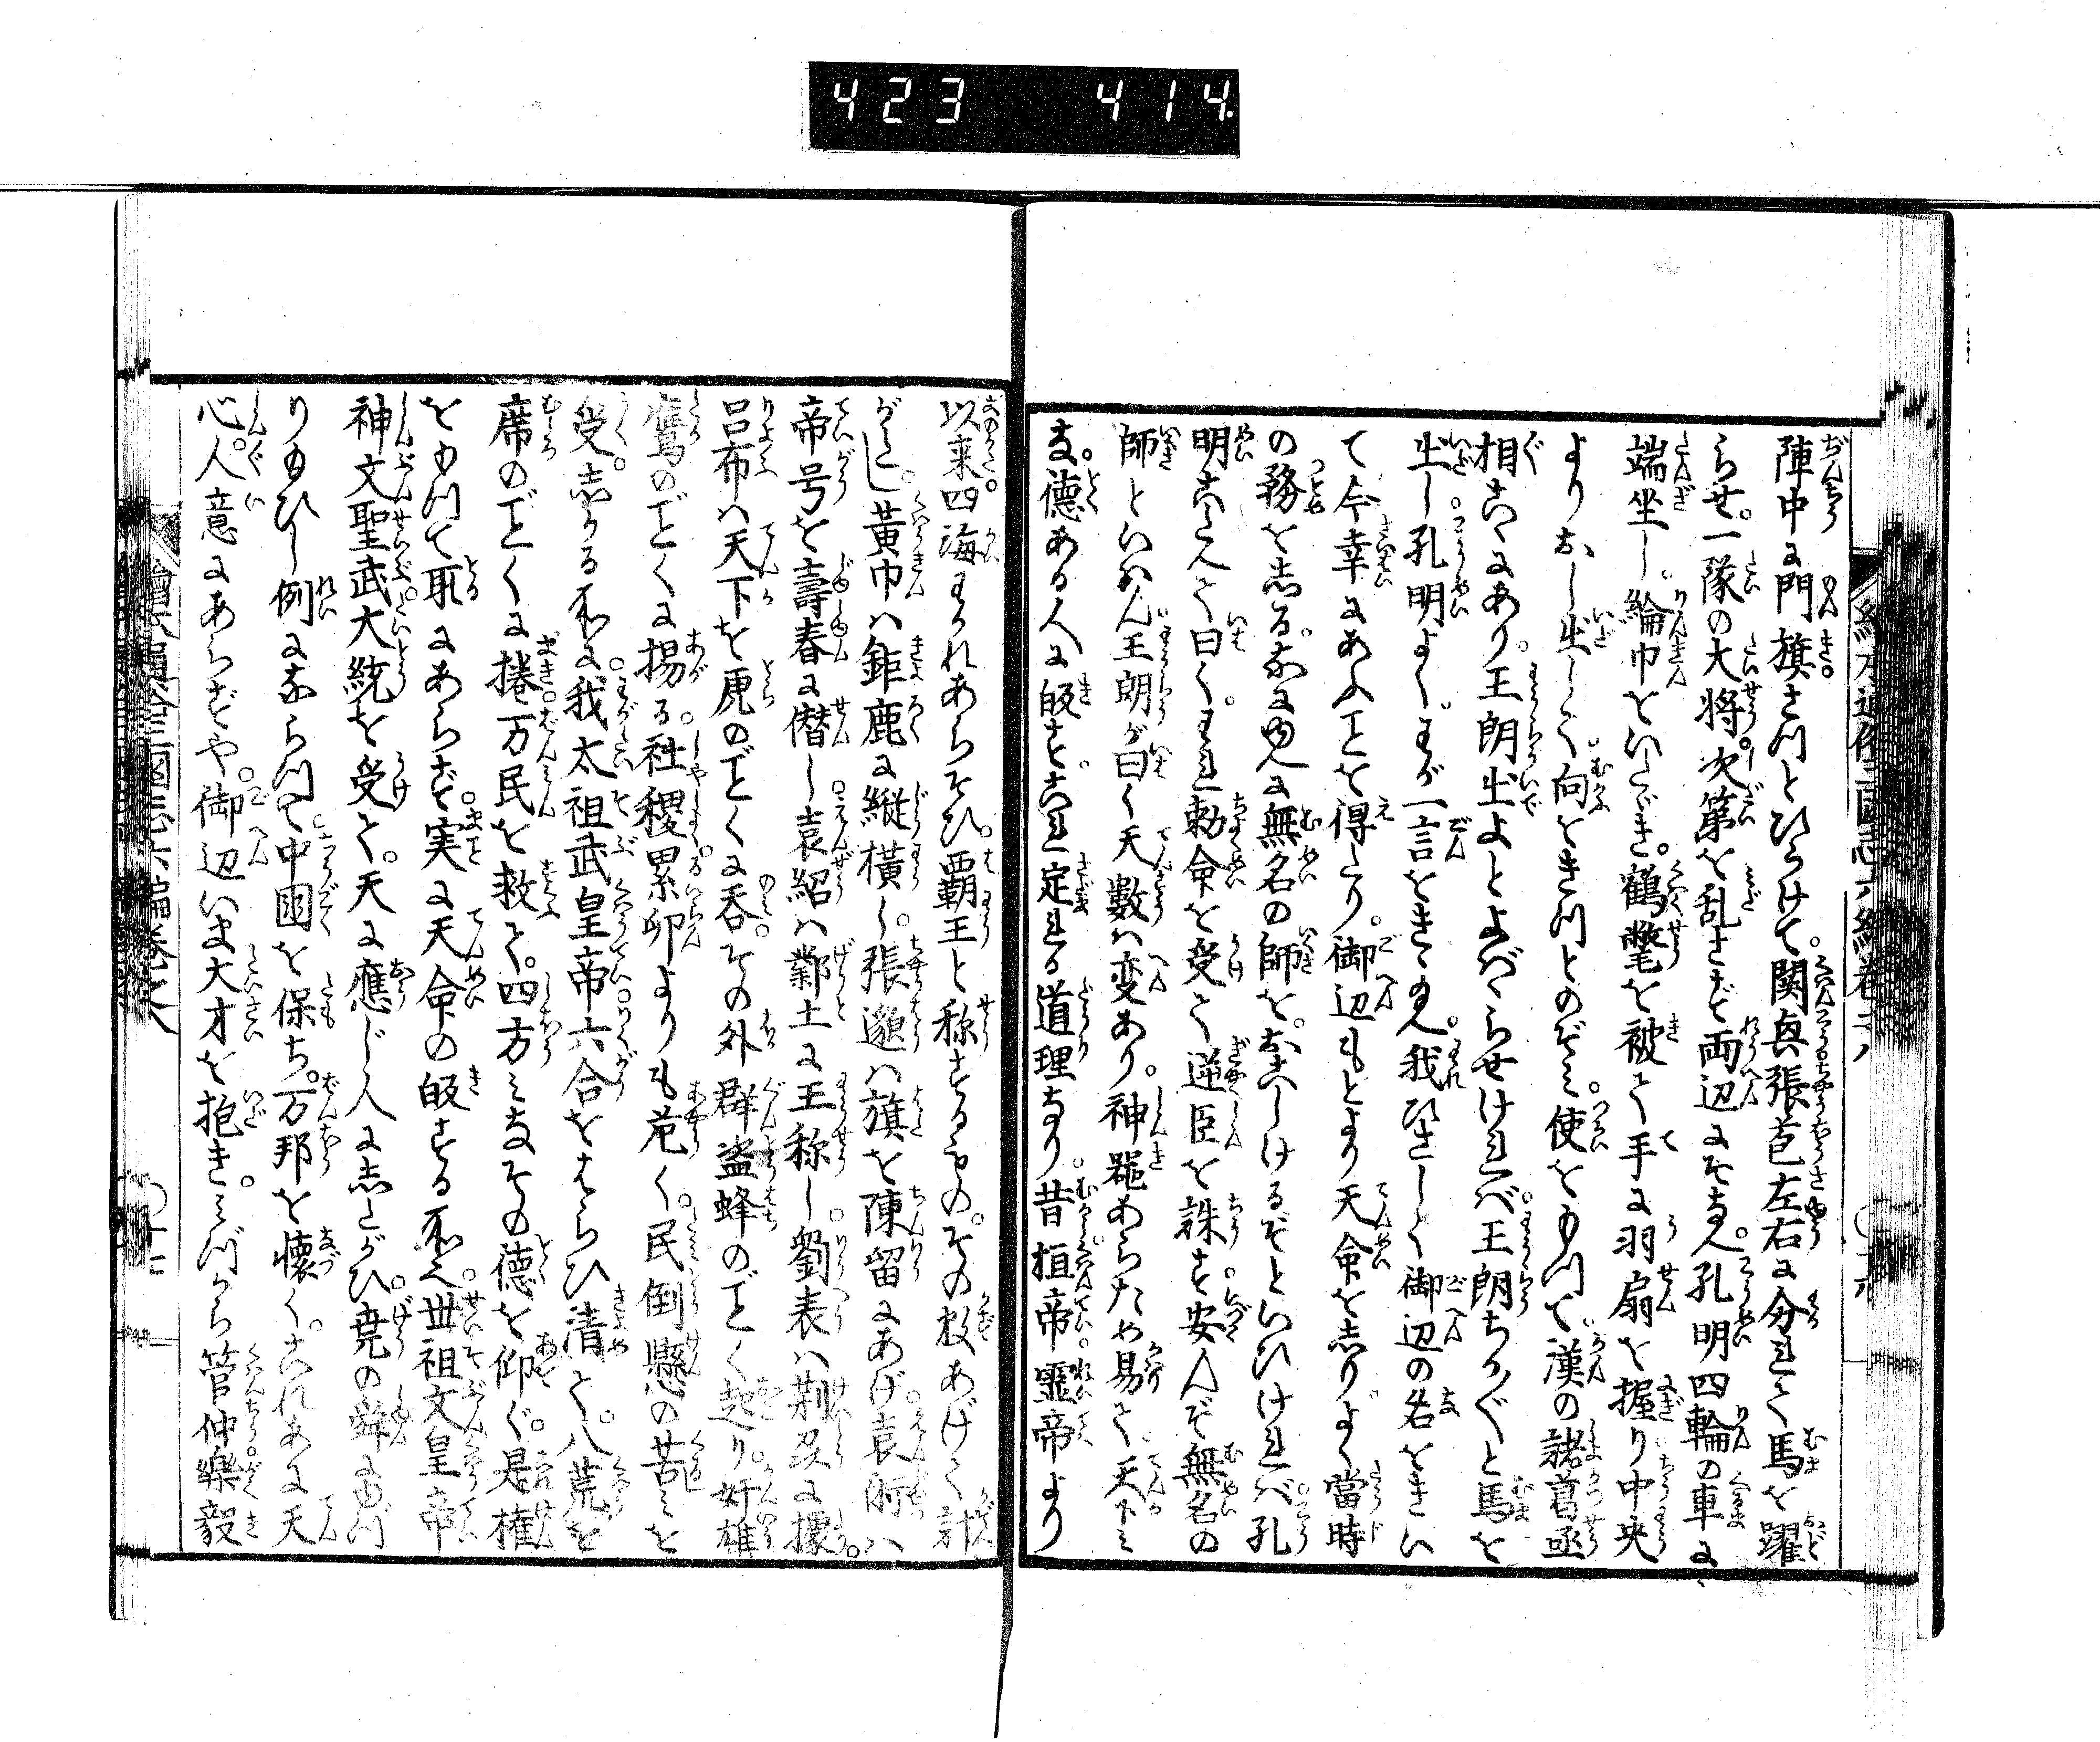 423 414.
陣中に門旗さつとひらけて。関興張苞左右に分れて馬を躍
らせ。一隊の大将。次第を乱さず両辺にそなへ。孔明四輪の車に
端坐し。綸巾をいたゞき。鶴氅を被て手に羽扇を握り中央
よりおし出して。向をきつとのぞみ。使をもつて漢の諸葛丞
相こゝにあり。王朗出よとよばゝらせければ。王朗ちかぐと馬を
出し。孔明よく。わが一言をきゝ給へ。我ひさしく御辺の名をきい
て今幸にあふことを得たり。御辺もとより天命をしりよく當時
の務をしる。なにゆへに無名の師を。おこしけるぞといひければ。孔
明こたへて曰く。われ勅命を受て逆臣を誅す。安んぞ無名の
師といはん王朗が曰く天數は変あり。神器あらため易て天下み
な。徳ある人に皈す。これ定れる道理なり。昔桓帝霊帝より
以来。四海わかれあらそひ。覇王と称するもの。その数あげて計
がたし。黄巾は鉅鹿に縦横し。張邈は旗を陳留にあげ。袁術は
帝号を壽春に僭し。袁紹は鄴土に王称し。劉表は荊及に據。
呂布は天下を虎のごとくに呑。その外群盗蜂のごとく起り。奸雄
鷹のごとくに揚る。社稷累卵よりも危く。民倒懸の苦みを
受。しかる所に。我太祖武皇帝。六合をはらひ清て。八荒を
席のごとくに捲。万民を救て。四方みなその徳を仰ぐ。是権
をもつて取にあらず。実に天命の皈する所也。世祖文皇帝
神文聖武。大統を受て。天に應じ人にしたがひ。尭の舜にゆづ
りもひし例にならつて。中国を保ち。万邦を懐く。これあに天
心。人意にあらずや。御辺いま大才を抱き。みづから管仲。樂毅